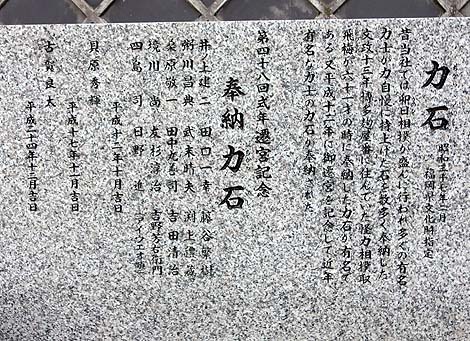 力石
昭和三十七年二月
福岡県文化財指定
昔当社では卯日相撲が盛んに行われ多くの有名
力士が力自慢に持上げた石を数多く奉納した
文政十三年博多の物屋番に住んでいた強力相撲取
飛梅が六十一才の時に奉納した力石が有名で
ある 又平成十二年に御遷宮を記念して近年
有名な力士の力石が奉納された
第四十八回式年遷宮記念
奉納力石
井上建二 田口一幸
粥川昌典 武末時夫 渕上
桑原敬一 田中 司 吉田清治
境川尚 友杉淳治 吉野
四島司 日野進
平成十二年十月吉日
貝原秀輝
平成十七年十一月吉日
古賀良太
平成二十四年十二月吉日